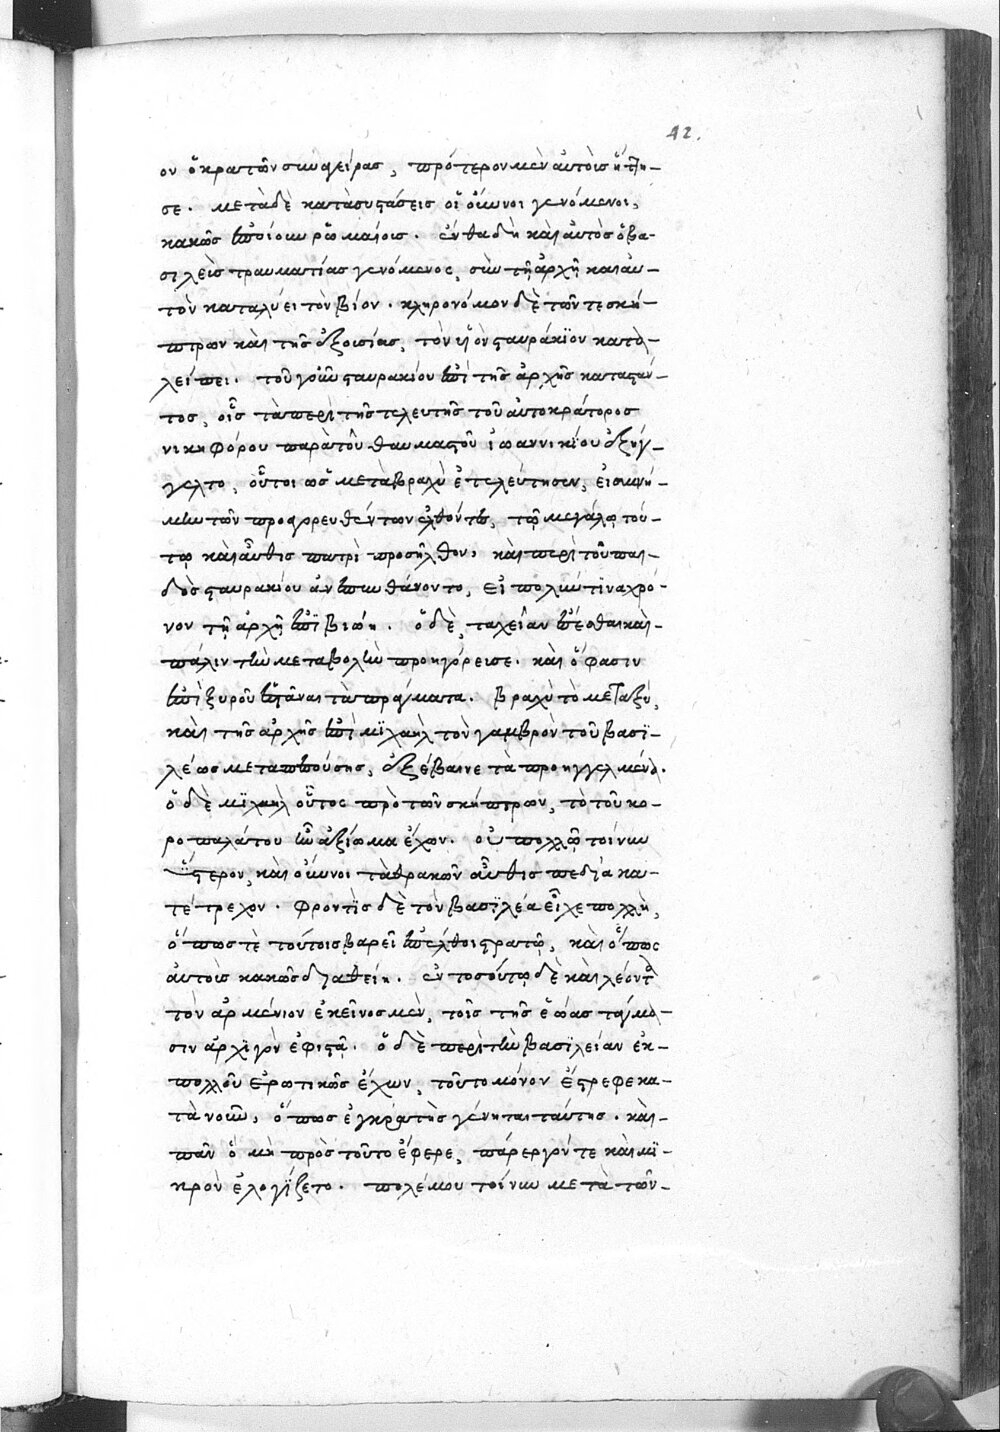 42.
ον ὁ κρατῶν συναγείρας, πρότερον μὲν αὐτοῖς ἡττη-
σε. μετὰ δὲ κατασυστάσεις οἱ οὖννοι γενόμενοι,
κακῶς ἐποίουν ῥωμαίοις. ἔνθα δὴ καὶ αὐτὸς ὁ βα-
σιλεὺς τραυματίας γενόμενος, σὺν τῇ ἀρχῇ καὶ αὐ-
τὸν καταλύει τὸν βίον. κληρονόμον δὲ τῶν τε σκή-
πτρων καὶ τῆς ἐξουσίας, τὸν υἱὸν σταυράκϊον κατα-
λείπει. τοῦ γοῦν σταυρακίου ἐπὶ τῆς ἀρχῆς καταστάν-
τος, οἷς τὰ περὶ τῆς τελευτῆς τοῦ αὐτοκράτορος
νικηφόρου παρὰ τοῦ θαυμαστοῦ ἰωαννικίου ἐξήγ-
γελτο, οὗτοι ὡς μετὰ βραχὺ ἐτελεύτησεν, εἰς μνή-
μην τῶν προαγορευθέντων ἐλθόντες, τῷ μεγάλῳ τού-
τῳ καὶ αὖθις πατρὶ προσῆλθον, καὶ περὶ τοῦ παι-
δὸς σταυρακίου ἀνεπυνθάνοντο, εἰ πολύν τινα χρό-
νον τῇ ἀρχῇ ἐπϊβιῴη. ὁ δὲ, ταχεῖαν ἔσεσθαι καὶ
πάλιν τὴν μεταβολὴν προηγόρευσε. καὶ ὅ φασιν
ἐπὶ ξυροῦ ἑστᾶναι τὰ πράγματα. βραχὺ τὸ μεταξύ,
καὶ τῆς ἀρχῆς ἐπὶ μϊχαὴλ τὸν γαμβρὸν τοῦ βασϊ-
λέως μεταπεσούσης, ἐξέβαινε τὰ προηγγελμένα.
ὁ δὲ μϊχαὴλ οὗτος πρὸ τῶν σκήπτρων, τὸ τοῦ κο-
ροπαλάτου ἦν ἀξίωμα ἔχων. οὐ πολλῷ τοίνυν
ὕστερον, καὶ οὖννοι τὰ θρακῶν αὖθις πεδία κα-
τέτρεχον. φροντὶς δὲ τὸν βασϊλέα εἶχε πολλὴ,
ὅπως τὲ τούτοις βαρεῖ ἐπέλθοι στρατῷ, καὶ ὅπως
αὐτοὺς κακῶς διαθείη. ἐν τοσούτῳ δὲ καὶ λέοντα
τὸν ἀρμένιον ἐκεῖνος μὲν, τοῖς τῆς ἑῴας τάγμα-
σιν ἀρχϊγὸν ἐφιστᾷ. ὁ δὲ περὶ τὴν βασϊλείαν ἐκ
πολλοῦ ἐρωτικῶς ἔχων, τοῦτο μόνον ἔστρεφε κα-
τὰ νοῦν, ὅπως ἐγκρατὴς γένηται ταύτης. καὶ
πᾶν ὃ μὴ πρὸς τοῦτο ἔφερε, πάρεργόν τε καὶ μϊ-
κρὸν ἐλογίζετο. πολέμου τοίνυν μετὰ τῶν